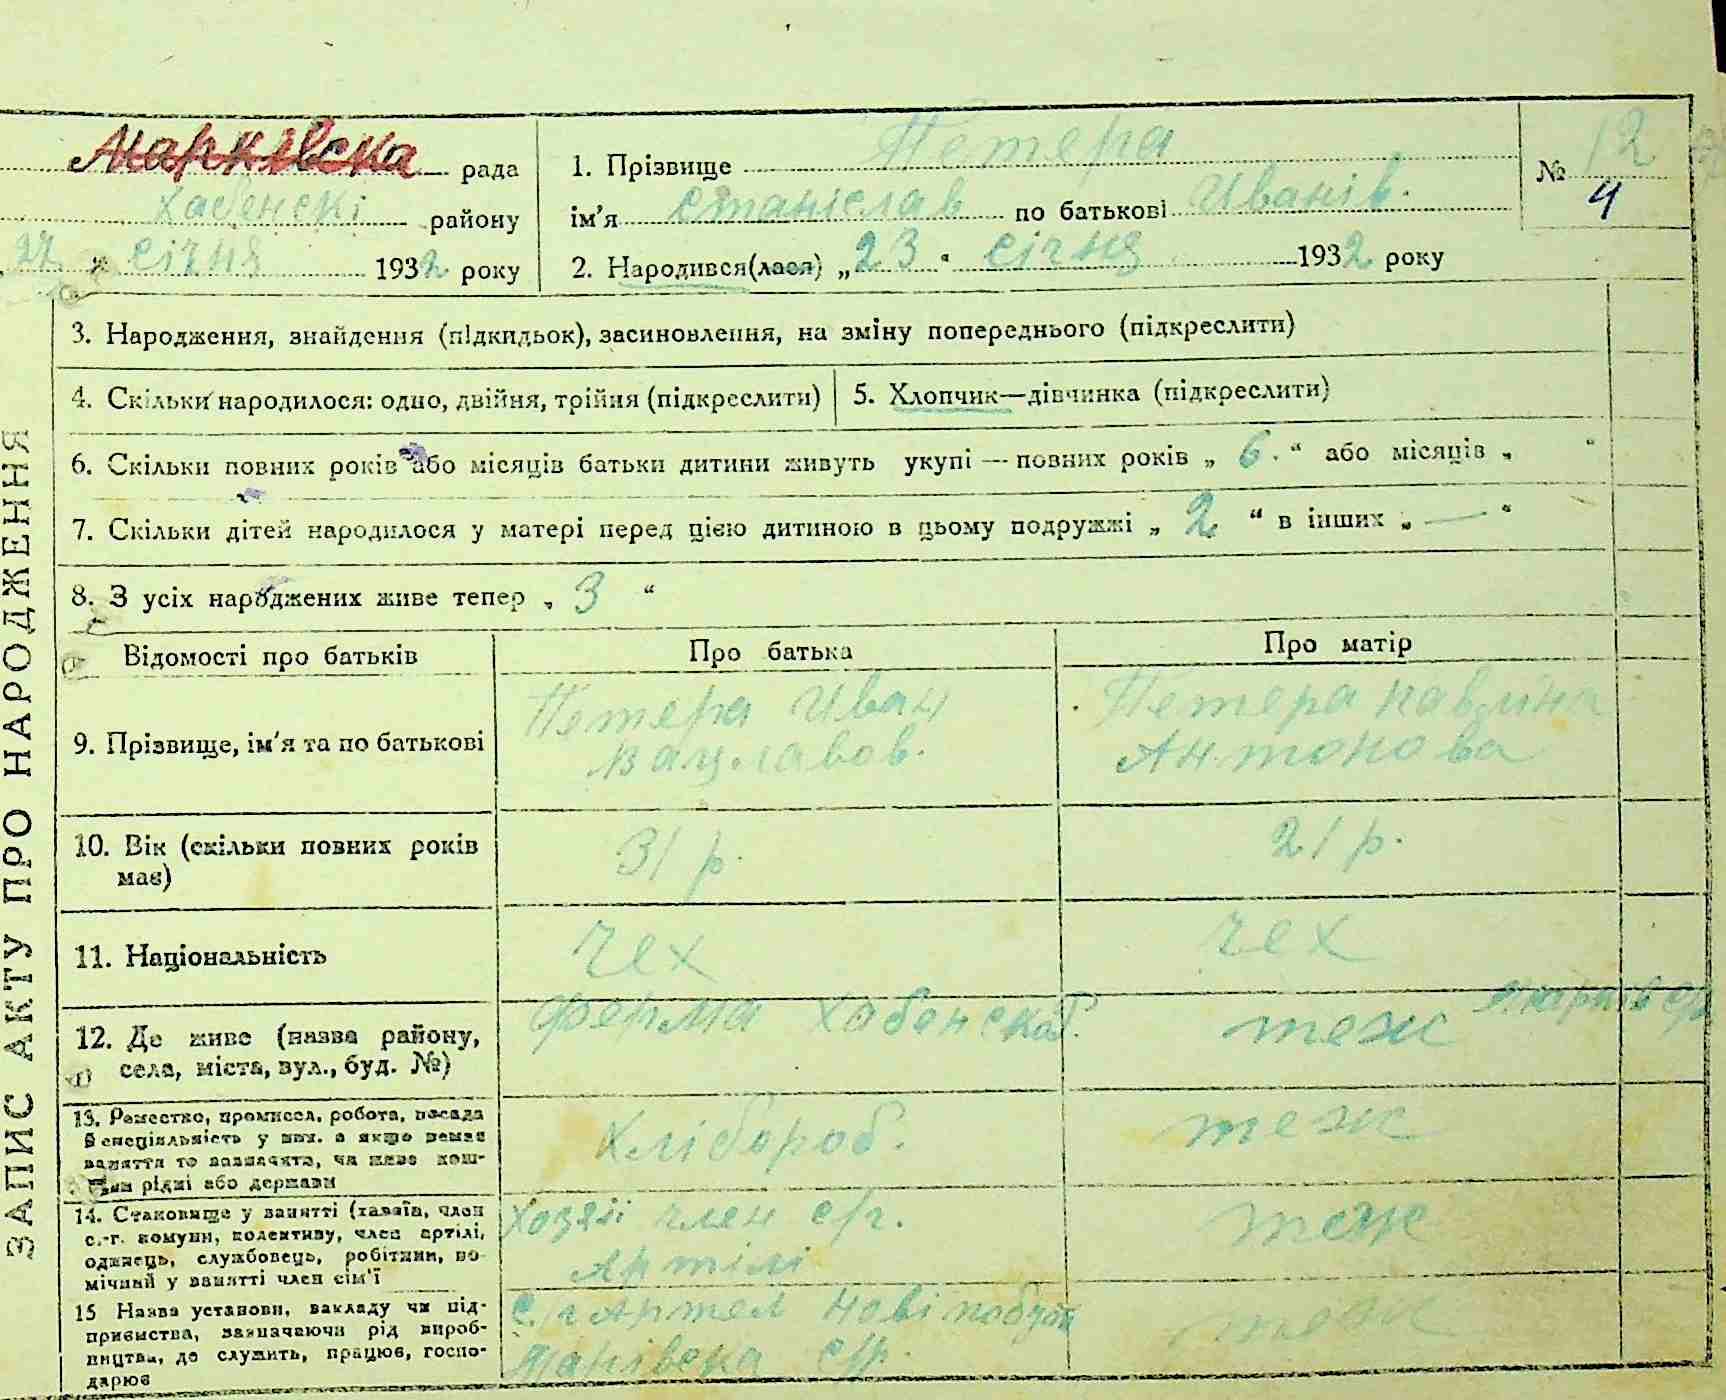 Марківска рада
Хабенскі району
27 " січня 1932 року
1. Прізвище Петера
ім'я Станіслав по батькові Иванів.
2. Народився(лася) „23" січня 1932 року
№ 12
4
ЗАПИС АКТУ ПРО НАРОДЖЕННЯ
3. Народження, знайдення (підкидьок), засиновлення, на зміну попереднього (підкреслити)
4. Скільки народилося: одно, двійня, трійня (підкреслити)
5. Хлопчик—дівчинка (підкреслити)
6. Скільки повних років або місяців батьки дитини живуть укупі — повних років „ 6. “ або місяців „ “
7. Скільки дітей народилося у матері перед цією дитиною в цьому подружжі „ 2 “ в інших „ — “
8. З усіх народжених живе тепер „ 3 “
Відомості про батьків
Про батька
Про матір
9. Прізвище, ім'я та по батькові
Петера Иван
Вацлавов.
Петера Павліна
Антонова
10. Вік (скільки повних років
має)
31 р.
21 р.
11. Національність
чех
чех
12. Де живе (назва району,
села, міста, вул., буд. №)
Ферма Хабенска Р.
теж
13. Ремество, промисел, робота, посада
й спеціяльність у них, а якщо немає
заняття то зазначити, чи живе кош-
рідні або держави
Хлібороб.
теж
14. Становище у занятті (хазяїн, член
с.-г. комуни, колективу, член артілі,
одинець, службовець, робітник, по-
мічний у занятті член сім'ї
Хозяй член с/г.
Артілі
теж
15 Назва установи, закладу чи під-
приємства, зазначаючи рід вироб-
ництва, де служить, працює, госпо-
дарює
С/г Артел Нові побут
с/р.
теж